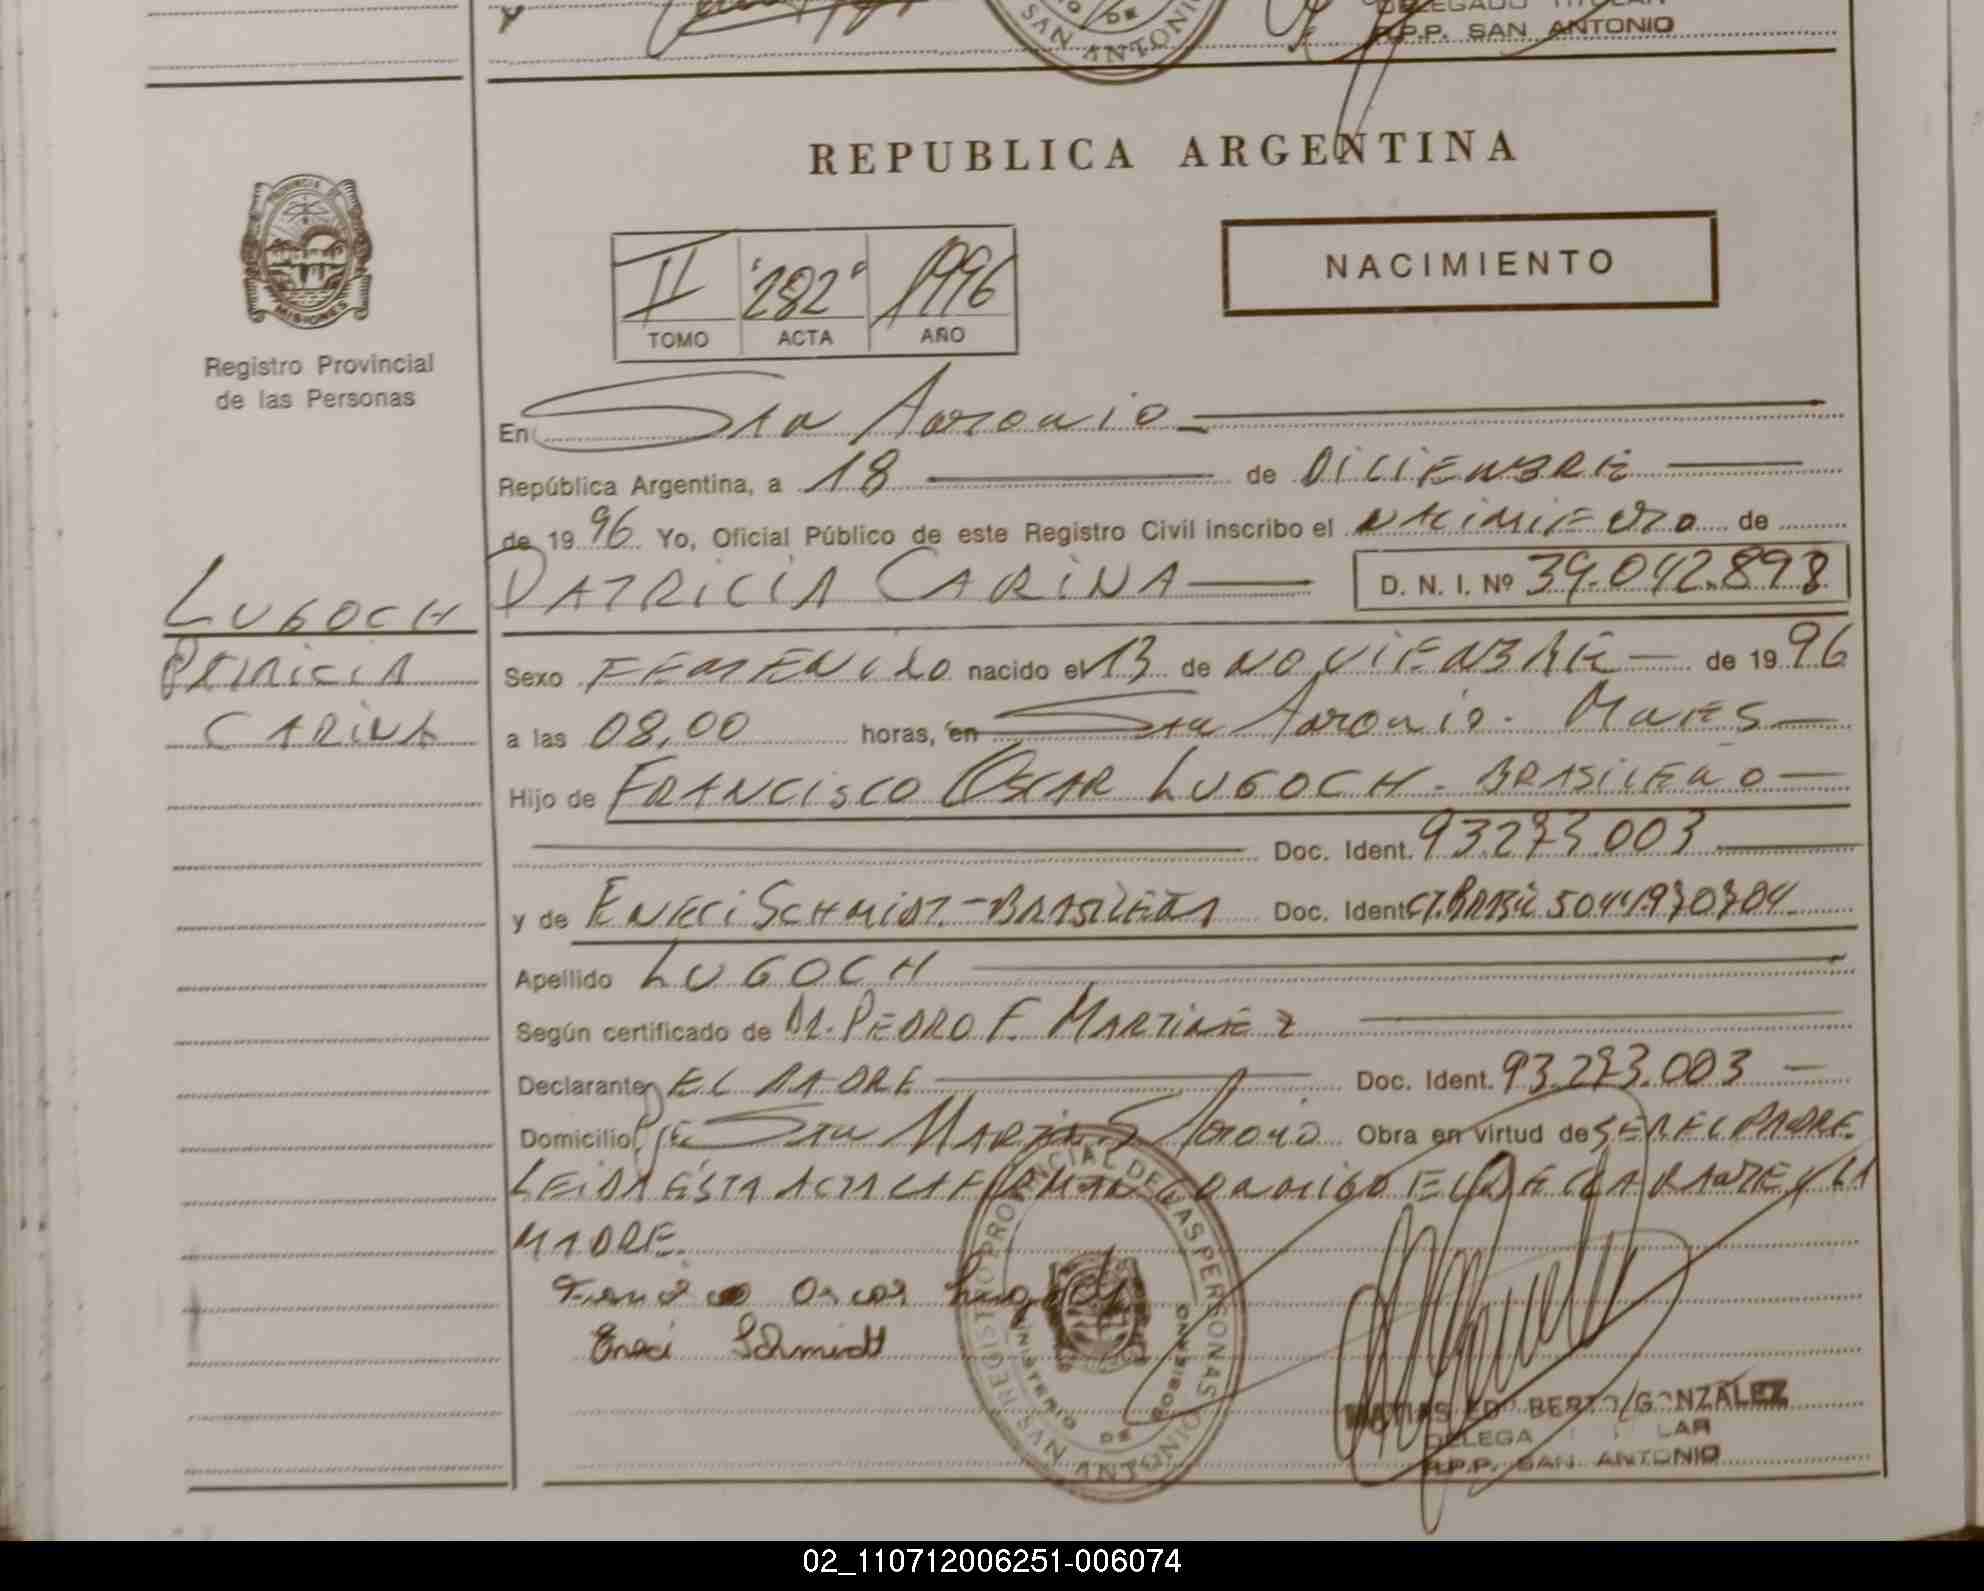 DELEGADO TITULAR
R.P.P. SAN ANTONIO
DE
SAN ANTONIO
REPUBLICA ARGENTINA
PROVINCIA DE
MISIONES
Registro Provincial
de las Personas
II "282" 1996
TOMO ACTA AÑO
NACIMIENTO
En San Antonio
República Argentina, a 18 de DICIEMBRE
de 1996 Yo, Oficial Público de este Registro Civil inscribo el NACIMIENTO de
PATRICIA CARINA D. N. I. Nº 39.042.898
LUGOCH
PATRICIA
CARINA
Sexo FEMENINO nacido el 13 de NOVIEMBRE de 1996
a las 08,00 horas, en San Antonio. Mnes
Hijo de FRANCISCO OSCAR LUGOCH - BRASILEÑO
Doc. Ident. 93.273.003
y de ENECI SCHMIDT - BRASILEÑA Doc. Ident. CI. BRASIL 5044970704
Apellido LUGOCH
Según certificado de DR. PEDRO F. MARTINEZ
Declarante EL PADRE Doc. Ident. 93.273.003
Domicilio San Martin S. Antonio Obra en virtud de SER EL PADRE
LEIDA ÉSTA ACTA LA FIRMAN CONMIGO EL DECLARANTE Y LA
MADRE.
Francisco Oscar Lugoch
Eneci Schmidt
REGISTRO PROVINCIAL DE LAS PERSONAS
MINISTERIO DE GOBIERNO
SAN ANTONIO
MATIAS EDILBERTO GONZALEZ
DELEGADO TITULAR
R.P.P. SAN ANTONIO
02_110712006251-006074